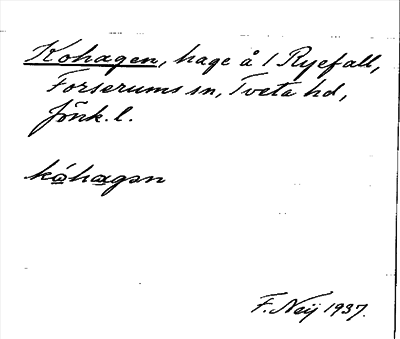 Kohagen, hage å 1 Ryefall,
Forserums sn, Tveta hd,
Jönk. l.
kóhagən
F. Neij 1937.